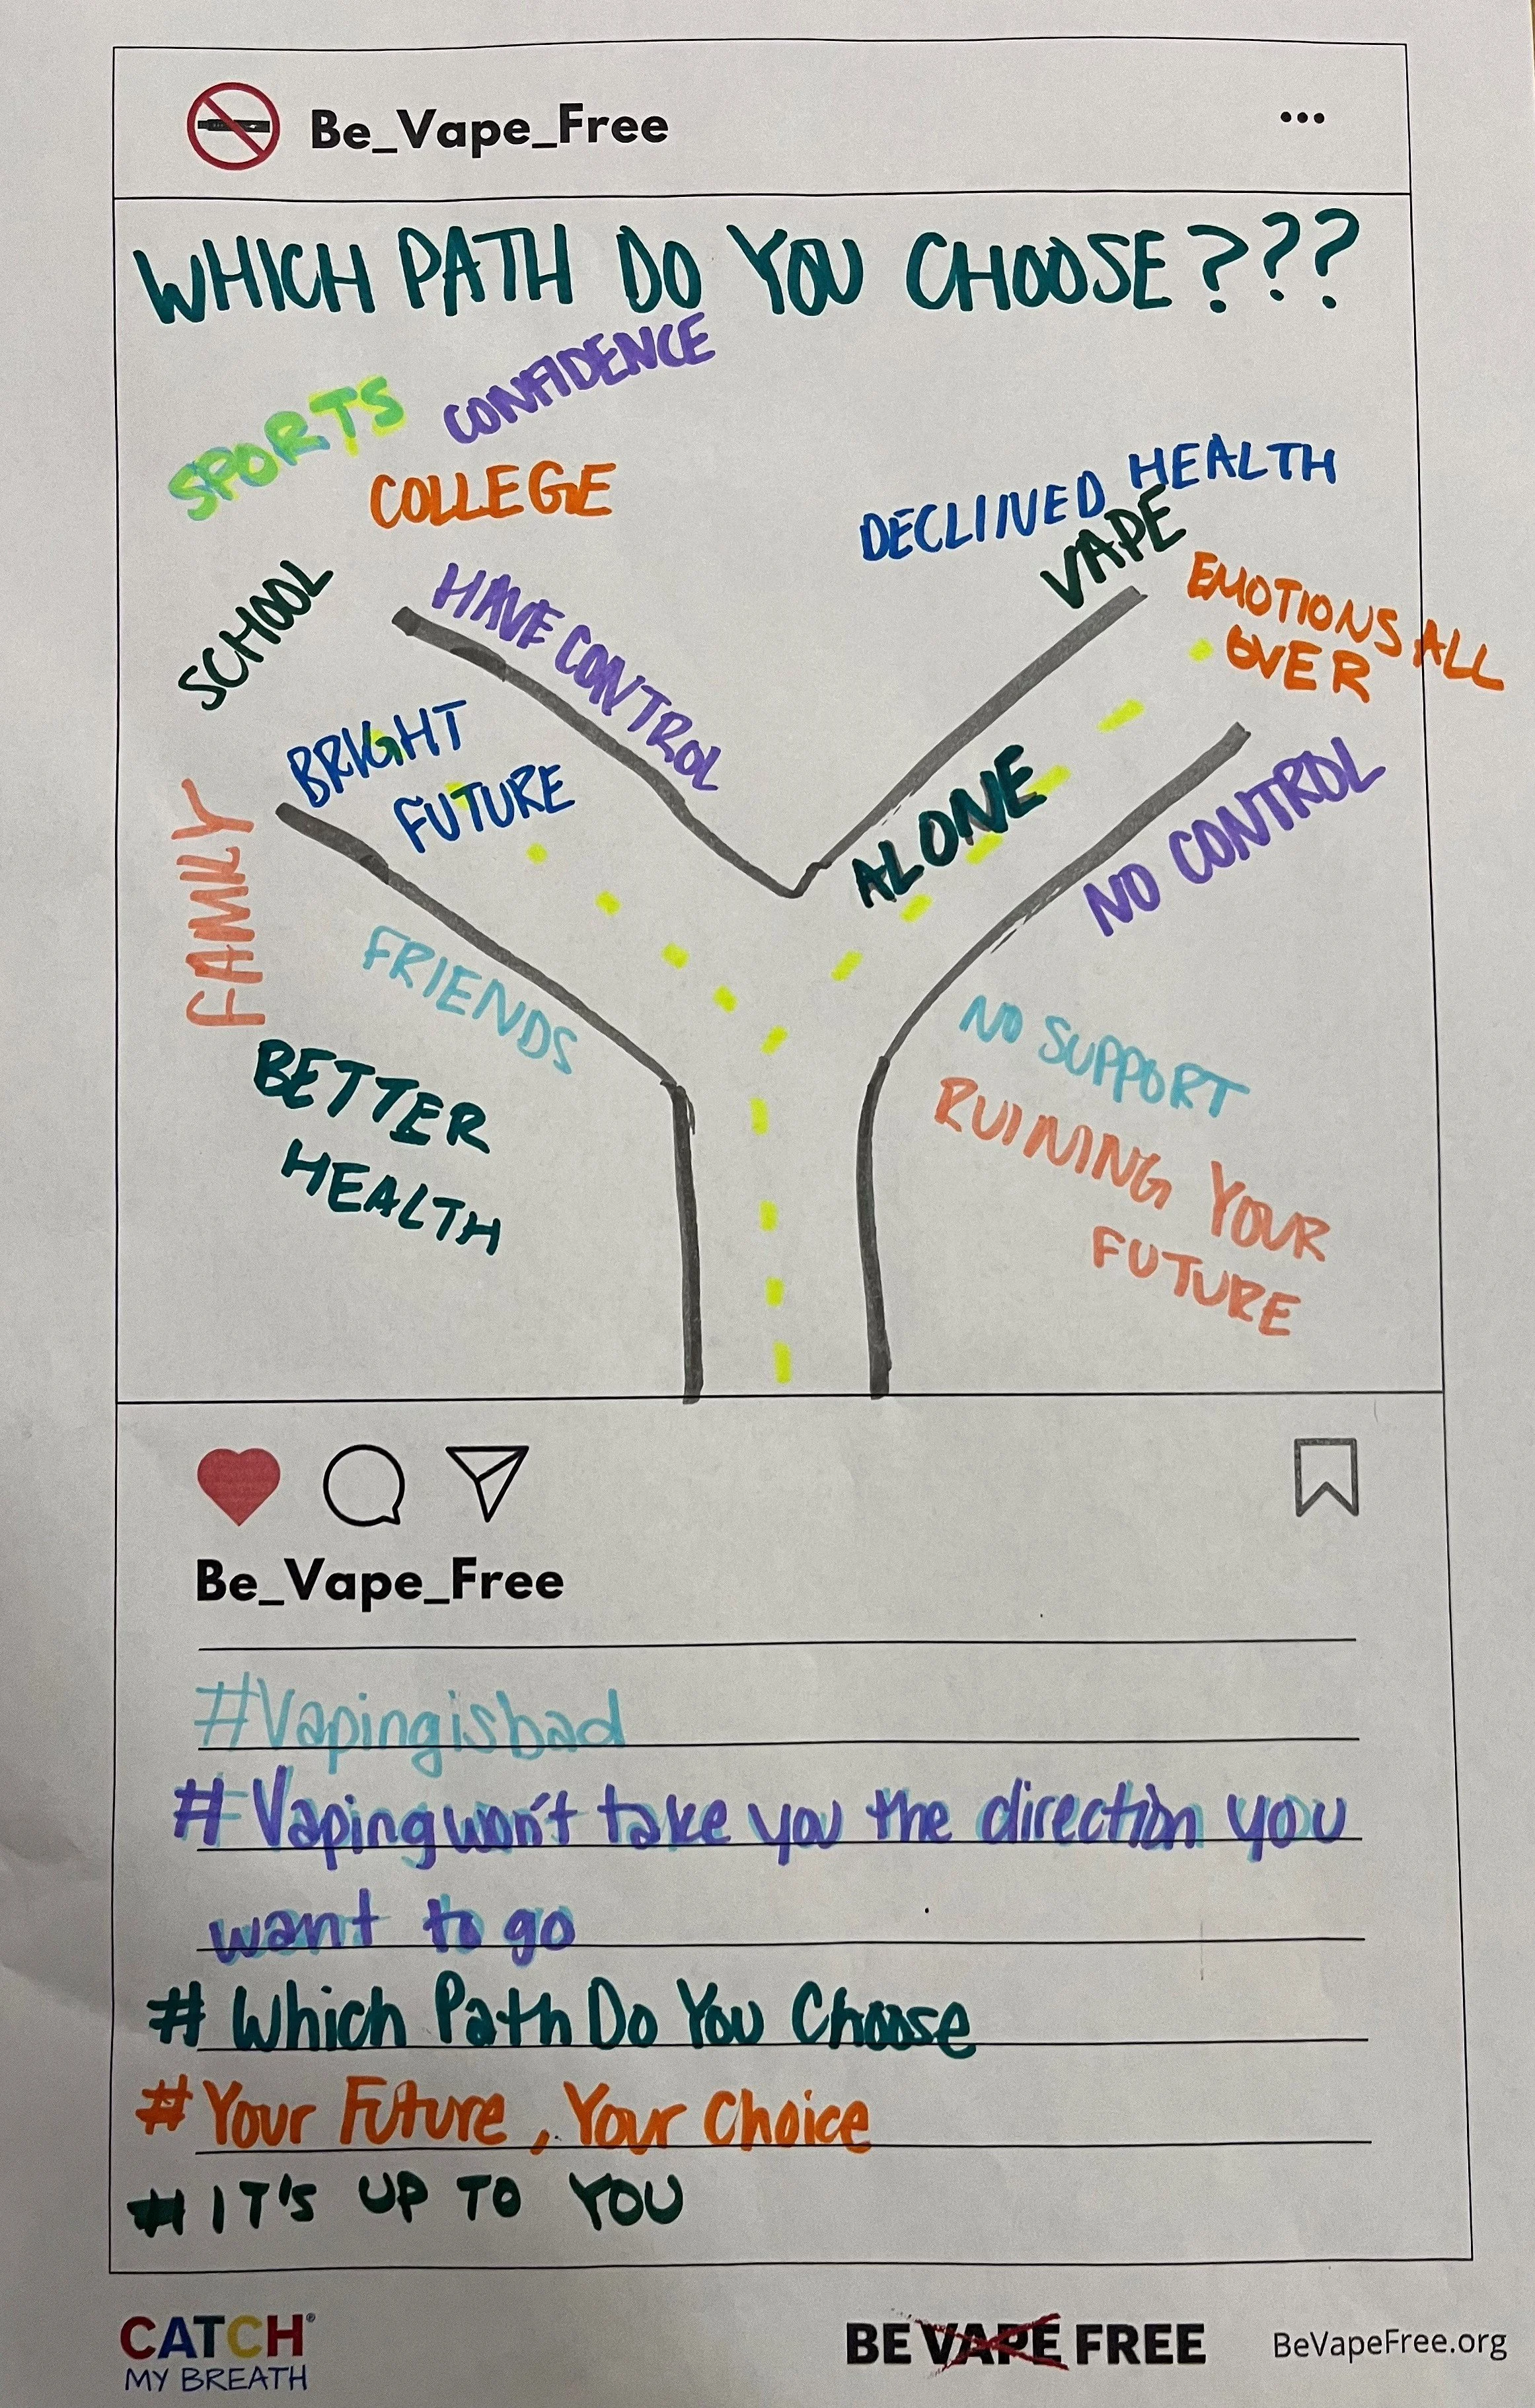 Be_Vape_Free
...
WHICH PATH DO YOU CHOOSE???
SPORTS
CONFIDENCE
COLLEGE
SCHOOL
HAVE CONTROL
BRIGHT
FUTURE
FAMILY
FRIENDS
BETTER
HEALTH
DECLINED HEALTH
VAPE
EMOTIONS ALL
OVER
ALONE
NO CONTROL
NO SUPPORT
RUINING YOUR
FUTURE
Be_Vape_Free
#Vapingisbad
# Vaping won't take you the direction you
want to go
# Which Path Do You Choose
# Your Future, Your Choice
# IT'S UP TO YOU
CATCH®
MY BREATH
BE VAPE FREE
BeVapeFree.org